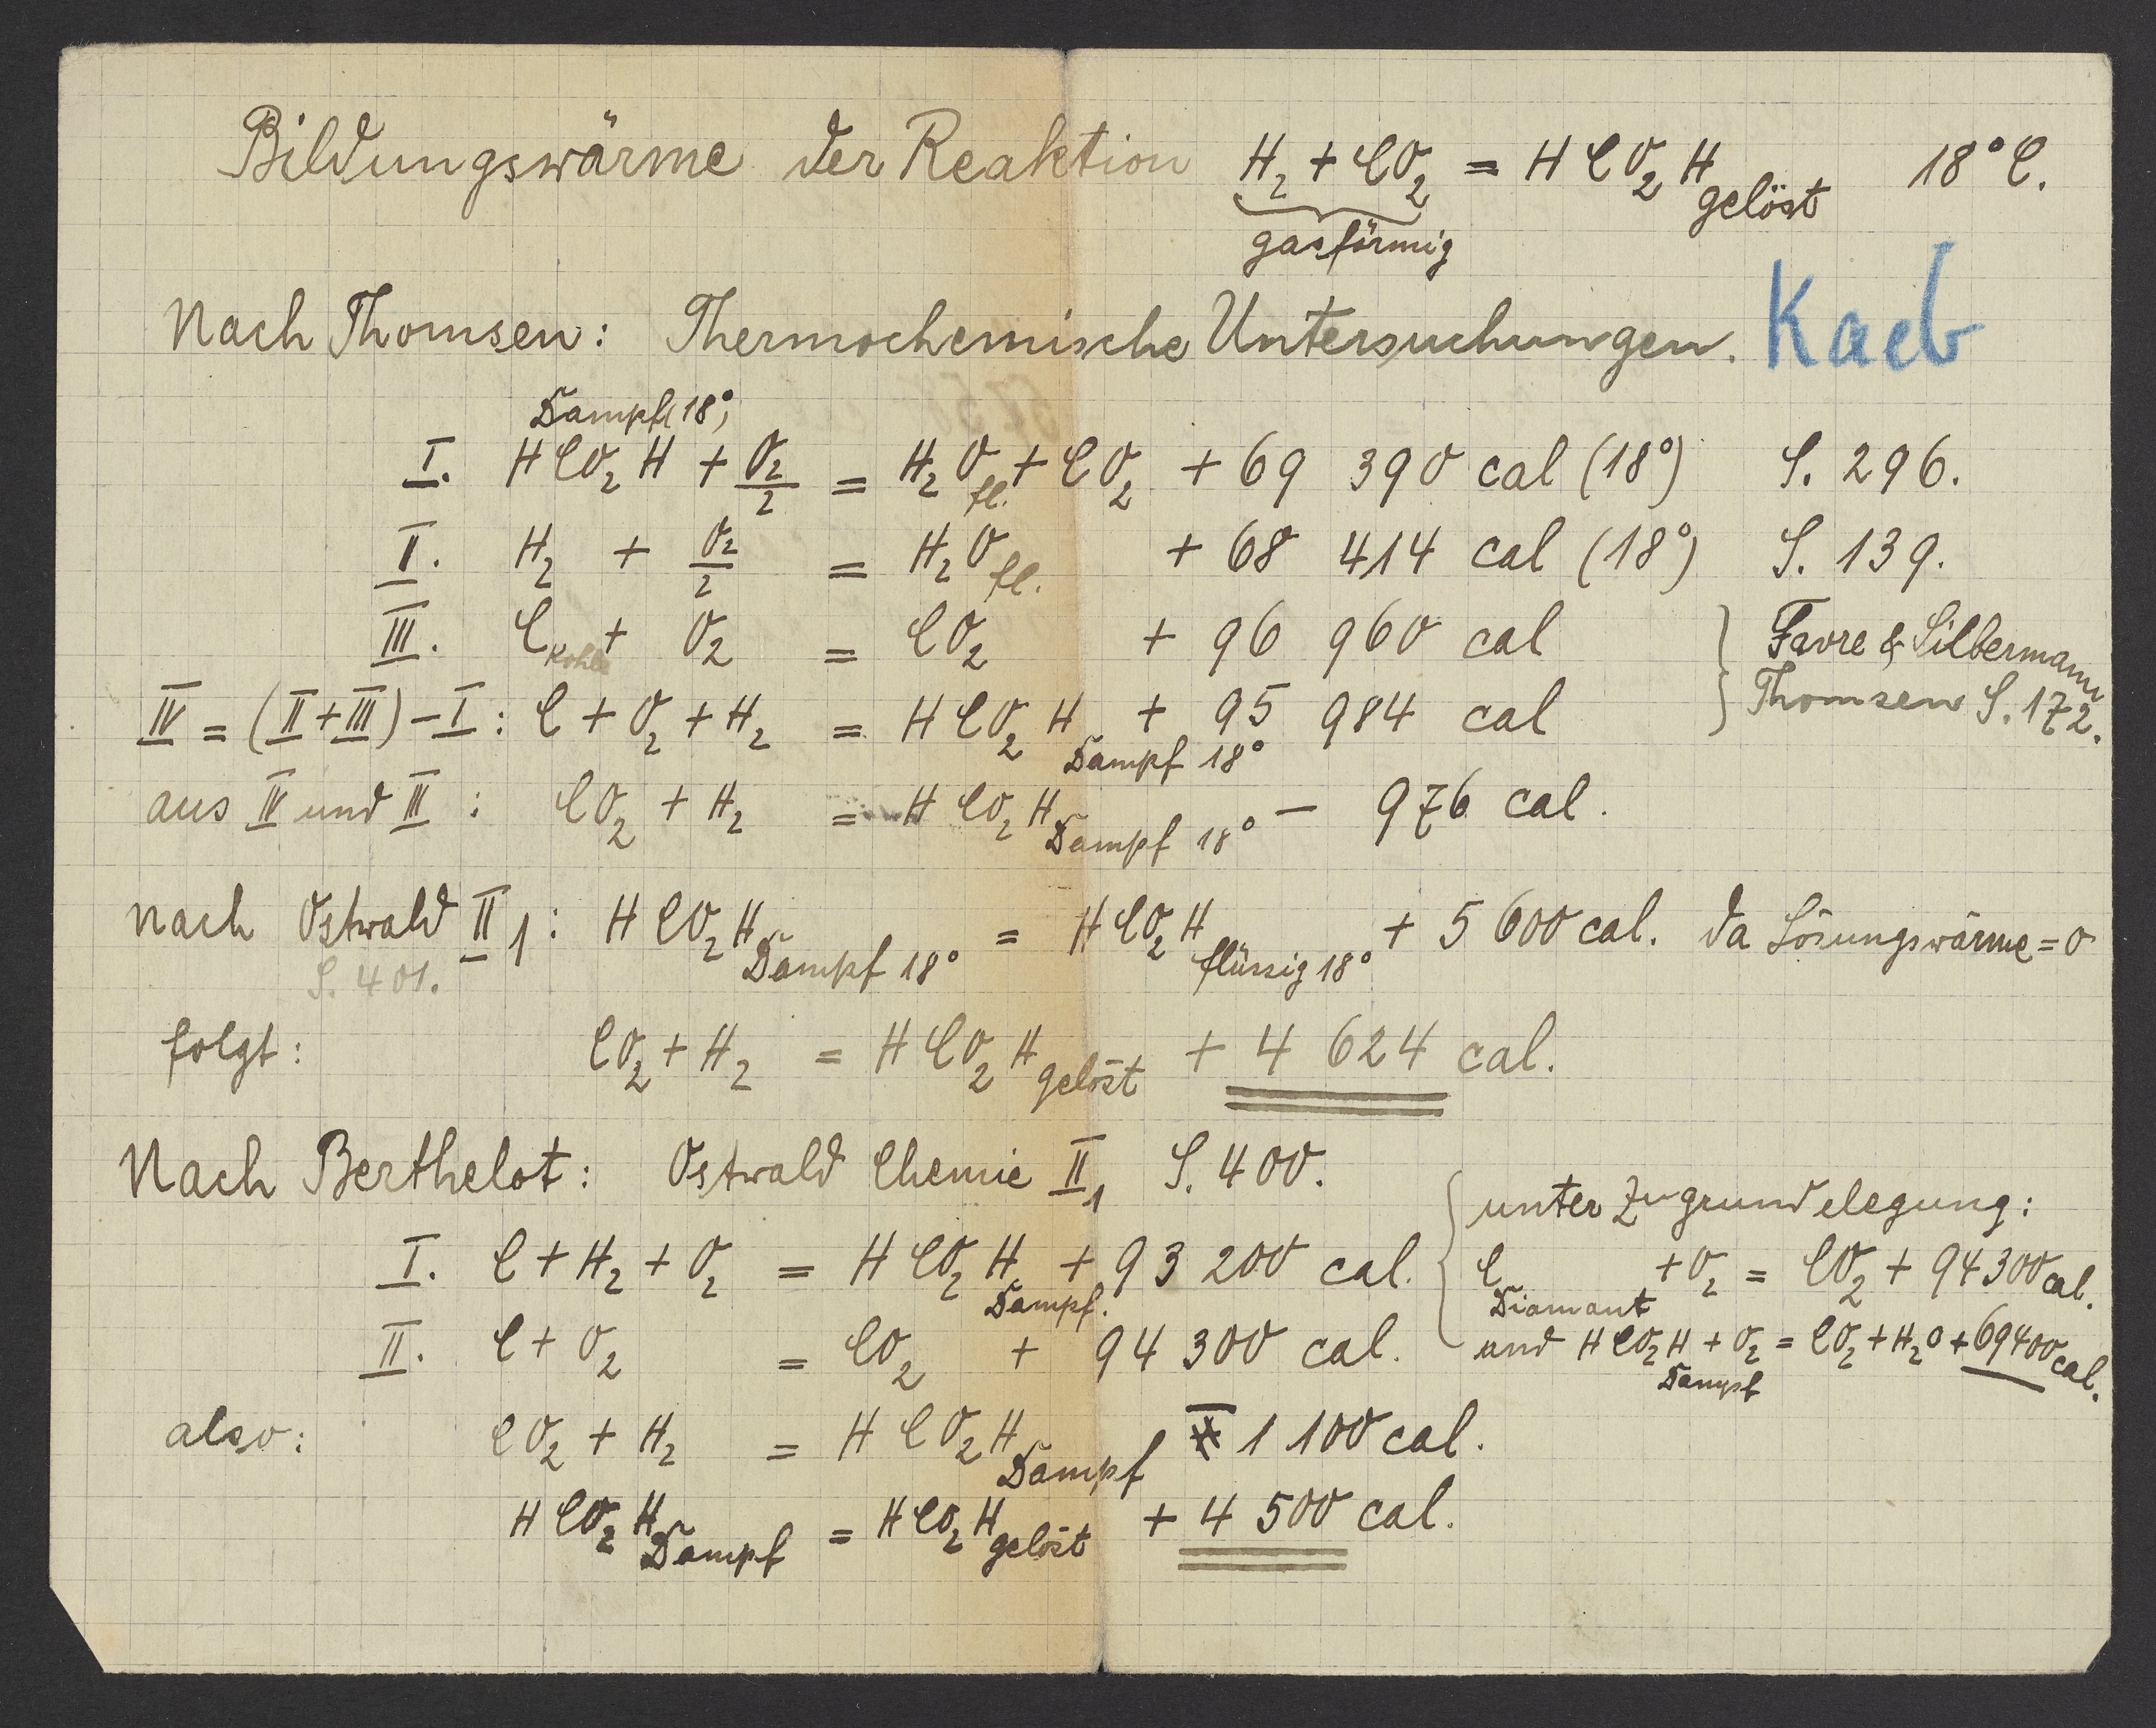 Bildungswärme der Reaktion H₂ + CO₂ = HCO₂H gelöst 18° C.
gasförmig
Nach Thomsen: Thermochemische Untersuchungen.
Dampf 18°,
I. HCO₂H + O₂/2 = H₂O fl. + CO₂ + 69 390 cal (18°) S. 296.
II. H₂ + O₂/2 = H₂O fl. + 68 414 cal (18°) S. 139.
III. C Kohle + O₂ = CO₂ + 96 960 cal } Favre & Silbermann
IV = (II + III) – I : C + O₂ + H₂ = HCO₂H Dampf 18° + 95 984 cal } Thomsen S. 172.
aus IV und III : CO₂ + H₂ = HCO₂H Dampf 18° – 976 cal.
nach Ostwald II 1 : HCO₂H Dampf 18° = HCO₂H flüssig 18° + 5 600 cal. da Lösungswärme = 0
S. 401.
folgt: CO₂ + H₂ = HCO₂H gelöst + 4 624 cal.
Nach Berthelot: Ostwald Chemie II 1 S. 400.
I. C + H₂ + O₂ = HCO₂H Dampf. + 93 200 cal.
II. C + O₂ = CO₂ + 94 300 cal.
{ unter Zugrundelegung:
C Diamant + O₂ = CO₂ + 94 300 cal.
und HCO₂H Dampf + O₂ = CO₂ + H₂O + 69400 cal.
also: CO₂ + H₂ = HCO₂H Dampf – 1 100 cal.
HCO₂H Dampf = HCO₂H gelöst + 4 500 cal.